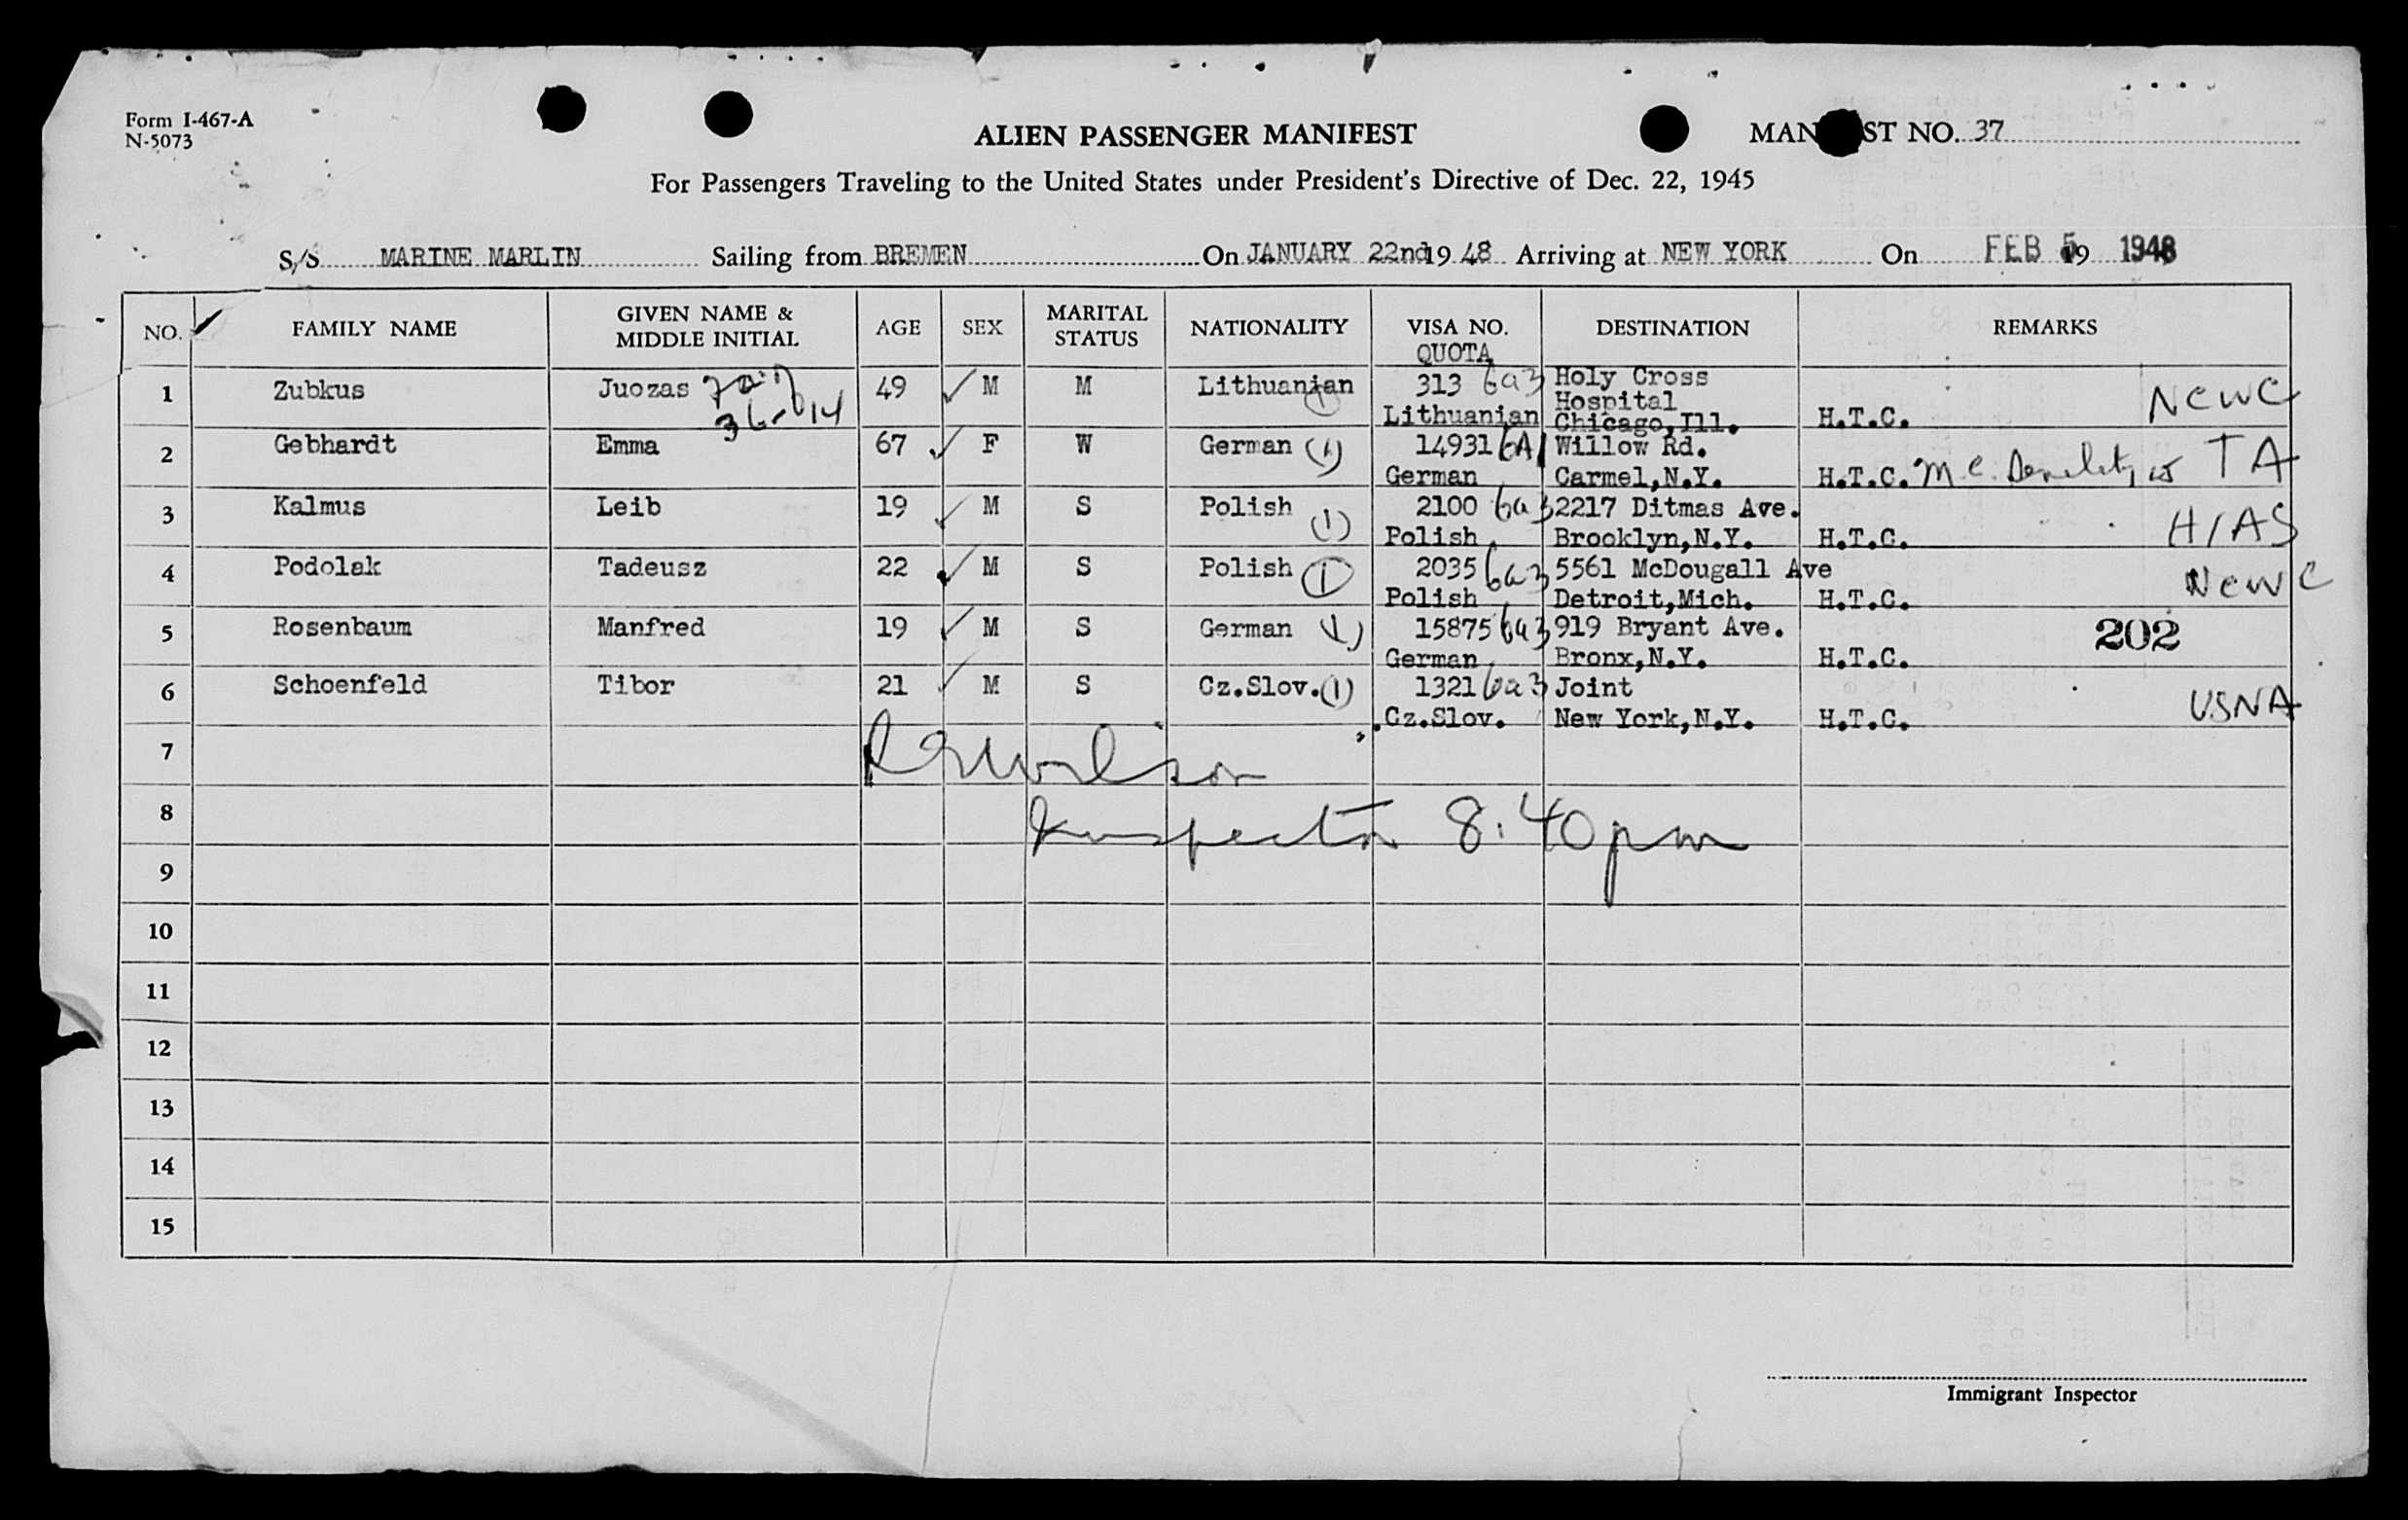 Form I-467-A
N-5073
ALIEN PASSENGER MANIFEST
MAN ST NO. 37
For Passengers Traveling to the United States under President's Directive of Dec. 22, 1945
S/S MARINE MARLIN Sailing from BREMEN On JANUARY 22nd 19 48 Arriving at NEW YORK On FEB 5 19 1948
NO. FAMILY NAME GIVEN NAME & MIDDLE INITIAL AGE SEX MARITAL STATUS NATIONALITY VISA NO. QUOTA DESTINATION REMARKS
1 Zubkus Juozas 49 M M Lithuanian (1) 313 6a3 Holy Cross
36-614 Hospital NCWC
Lithuanian Chicago,Ill. H.T.C.
2 Gebhardt Emma 67 F W German (1) 14931 6A1 Willow Rd.
German Carmel,N.Y. H.T.C. TA
3 Kalmus Leib 19 M S Polish (1) 2100 6a3 2217 Ditmas Ave.
Polish Brooklyn,N.Y. H.T.C. HIAS
4 Podolak Tadeusz 22 M S Polish (1) 2035 6a3 5561 McDougall Ave
Polish Detroit,Mich. H.T.C. NCWC
5 Rosenbaum Manfred 19 M S German (1) 15875 6a3 919 Bryant Ave. 202
German Bronx,N.Y. H.T.C.
6 Schoenfeld Tibor 21 M S Cz.Slov. (1) 1321 6a3 Joint
Cz.Slov. New York,N.Y. H.T.C. USNA
7 Wilson
8 Inspector 8:40 pm
9
10
11
12
13
14
15
Immigrant Inspector